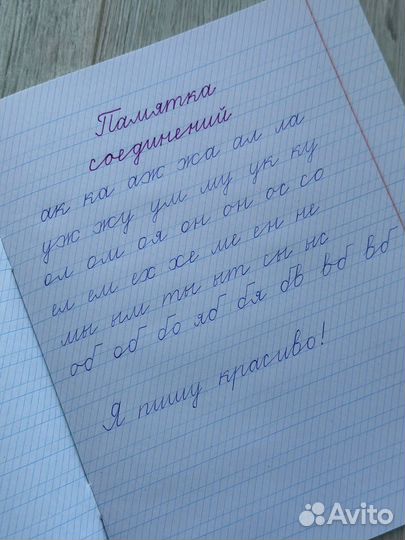 Памятка
соединений
ак ка аж жа ал ла
уж жу ум му ук ку
ол ом оя он он ос со
ел ем ех хе ме ен не
мы ым ты ыт сы ыс
об об бо яб бя бв вб вб
Я пишу красиво!
Avito